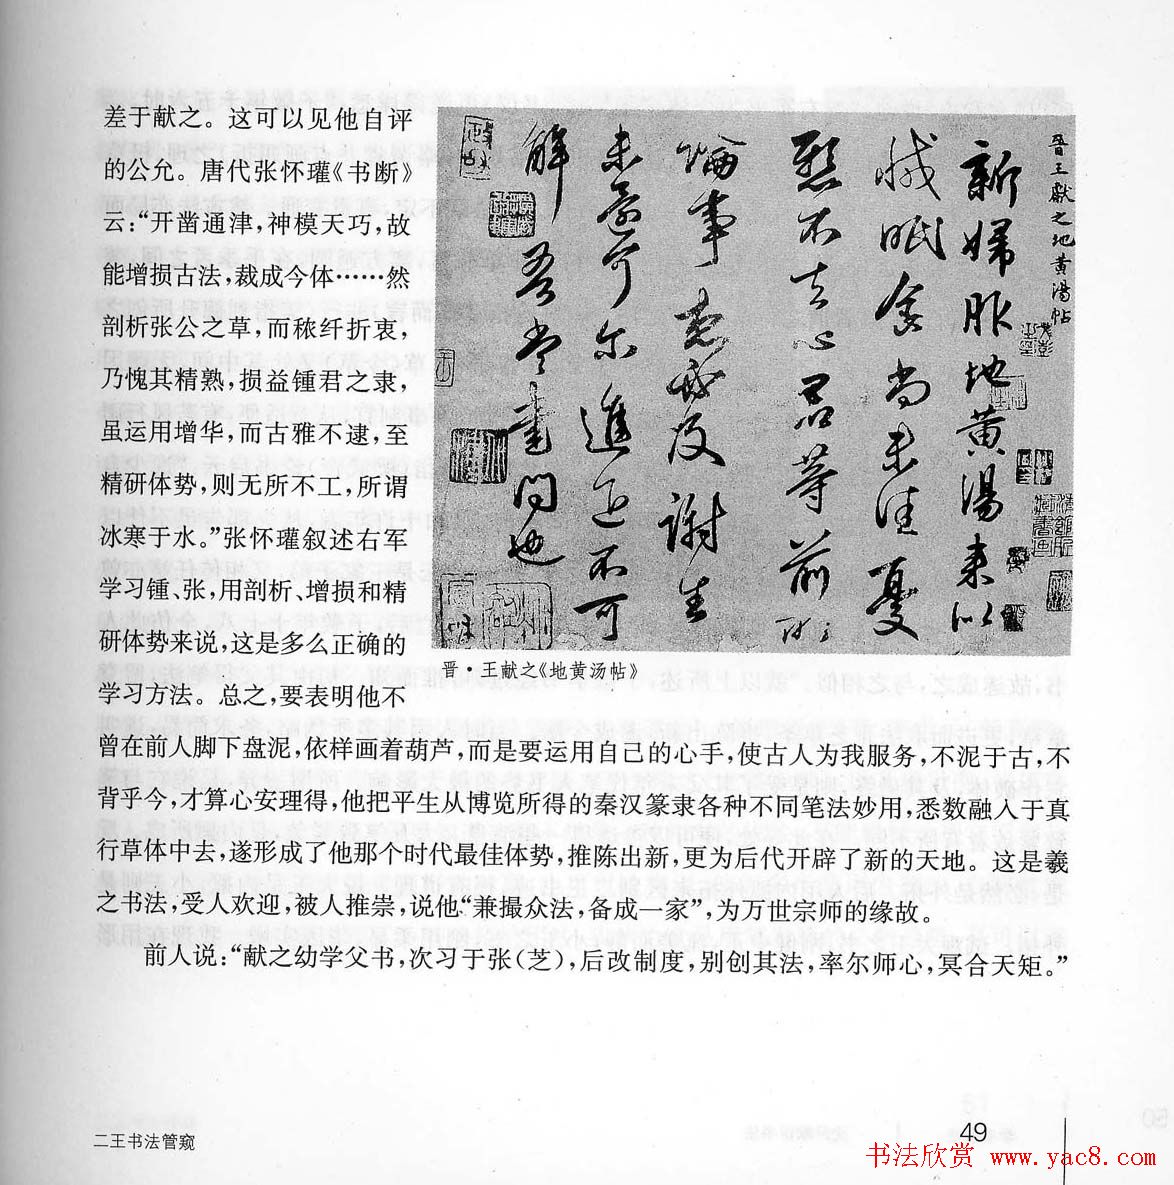 差于献之。这可以见他自评
的公允。唐代张怀瓘《书断》
云：“开凿通津，神模天巧，故
能增损古法，裁成今体……然
剖析张公之草，而秾纤折衷，
乃愧其精熟，损益锺君之隶，
虽运用增华，而古雅不逮，至
精研体势，则无所不工，所谓
冰寒于水。”张怀瓘叙述右军
学习锺、张，用剖析、增损和精
研体势来说，这是多么正确的
学习方法。总之，要表明他不
曾在前人脚下盘泥，依样画着葫芦，而是要运用自己的心手，使古人为我服务，不泥于古，不
背乎今，才算心安理得，他把平生从博览所得的秦汉篆隶各种不同笔法妙用，悉数融入于真
行草体中去，遂形成了他那个时代最佳体势，推陈出新，更为后代开辟了新的天地。这是羲
之书法，受人欢迎，被人推崇，说他“兼撮众法，备成一家”，为万世宗师的缘故。
前人说：“献之幼学父书，次习于张（芝），后改制度，别创其法，率尔师心，冥合天矩。”
晋王献之地黄汤帖
新婦服地黄湯来似
減眠食尚未佳憂
懸不去心君等前所
論事想必及謝生
未還可尔進退不可
解吾當書問也
晋·王献之《地黄汤帖》
二王书法管窥
49
书法欣赏 www.yac8.com